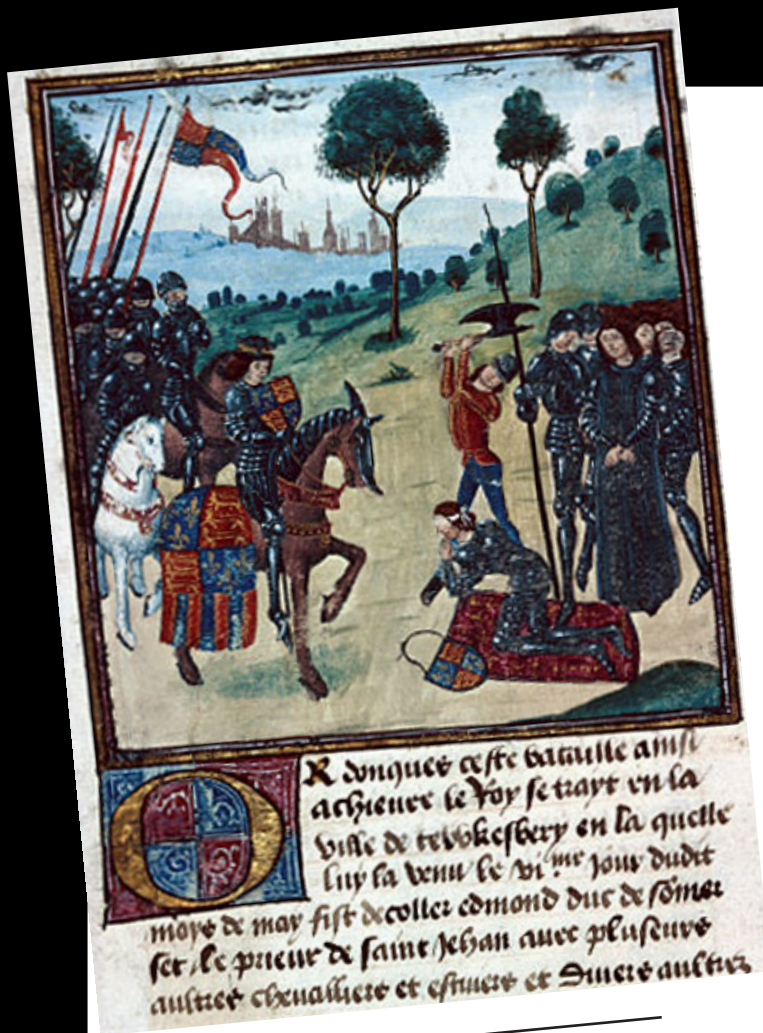 Or donques ceste bataille ainsi
achieuee le Roy se trayt en la
ville de tewkesbery en la quelle
luy la venu le vi.me jour dudit
moys de may fist decoller edmond duc de somer
set, le prieur de saint Jehan auec pluseurs
aultres cheualliers et escuiers et diuers aultres